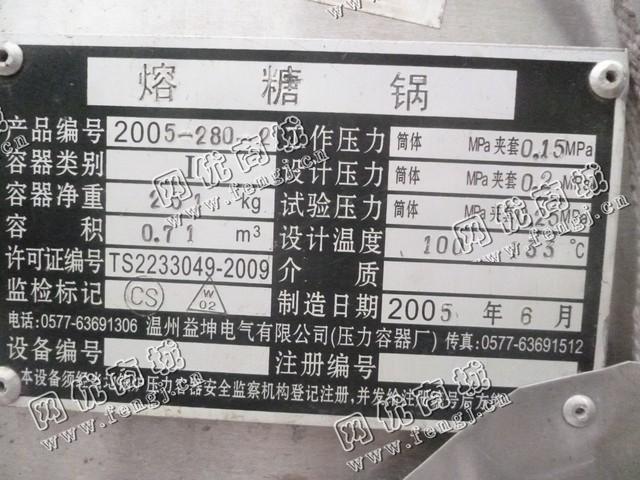 熔糖锅
产品编号 2005-280 工作压力 筒体 MPa 夹套 0.15MPa
容器类别 设计压力 筒体 MPa 夹套 MPa
容器净重 kg 试验压力 筒体 MPa 夹套 MPa
容积 0.71 m³ 设计温度 ℃
许可证编号 TS2233049-2009 介质
监检标记 CS W 02 制造日期 2005 年 6 月
电话:0577-63691306 温州益坤电气有限公司(压力容器厂) 传真:0577-63691512
设备编号 注册编号
本设备须 压力容器安全监察机构登记注册,并发给注册编号后方
网优商城
www.fengj.cn
网优商城
www.fengj.cn
网优商城
www.fengj.cn
网优商城
www.fengj.cn
网优商城
www.fengj.cn